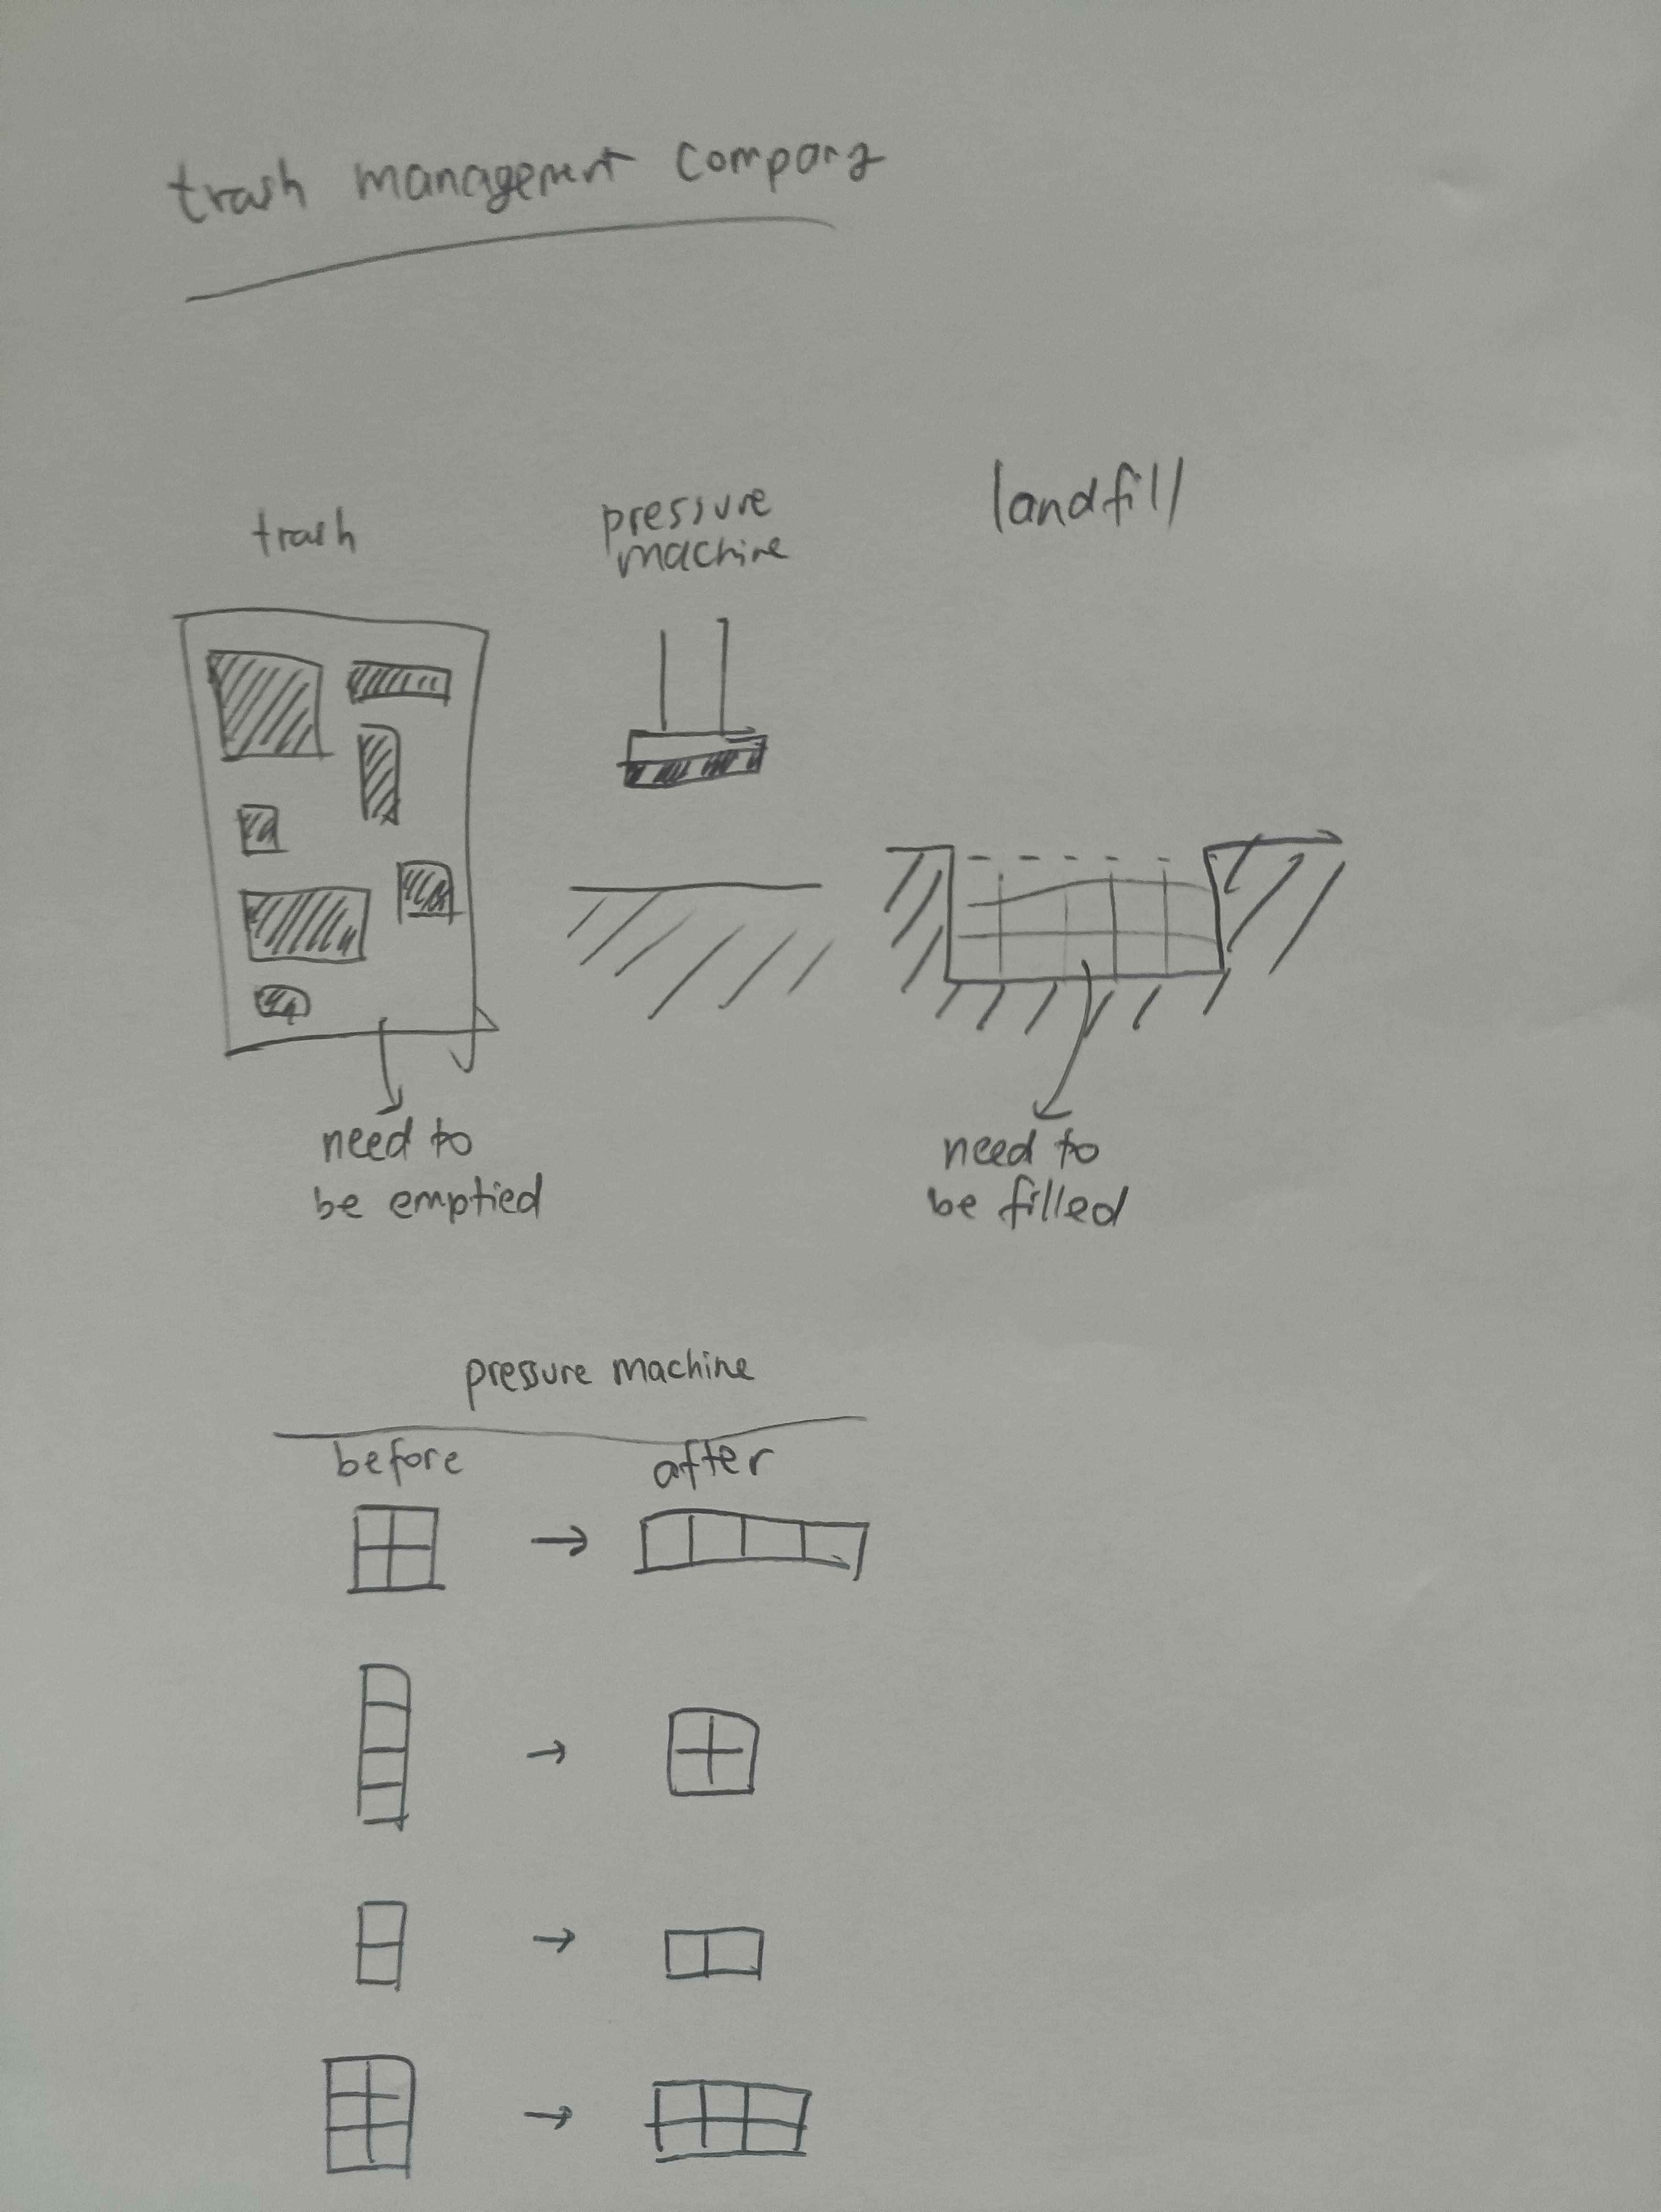 trash management company
trash
pressure
machine
landfill
need to
be emptied
need to
be filled
pressure machine
before after